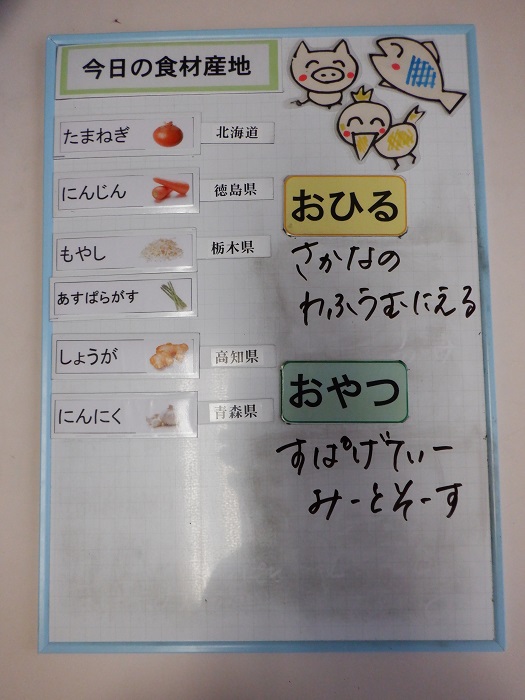 今日の食材産地
たまねぎ 北海道
にんじん 徳島県
もやし 栃木県
あすぱらがす
しょうが 高知県
にんにく 青森県
おひる
さかなの
わふうむにえる
おやつ
すぱげてぃー
みーとそーす